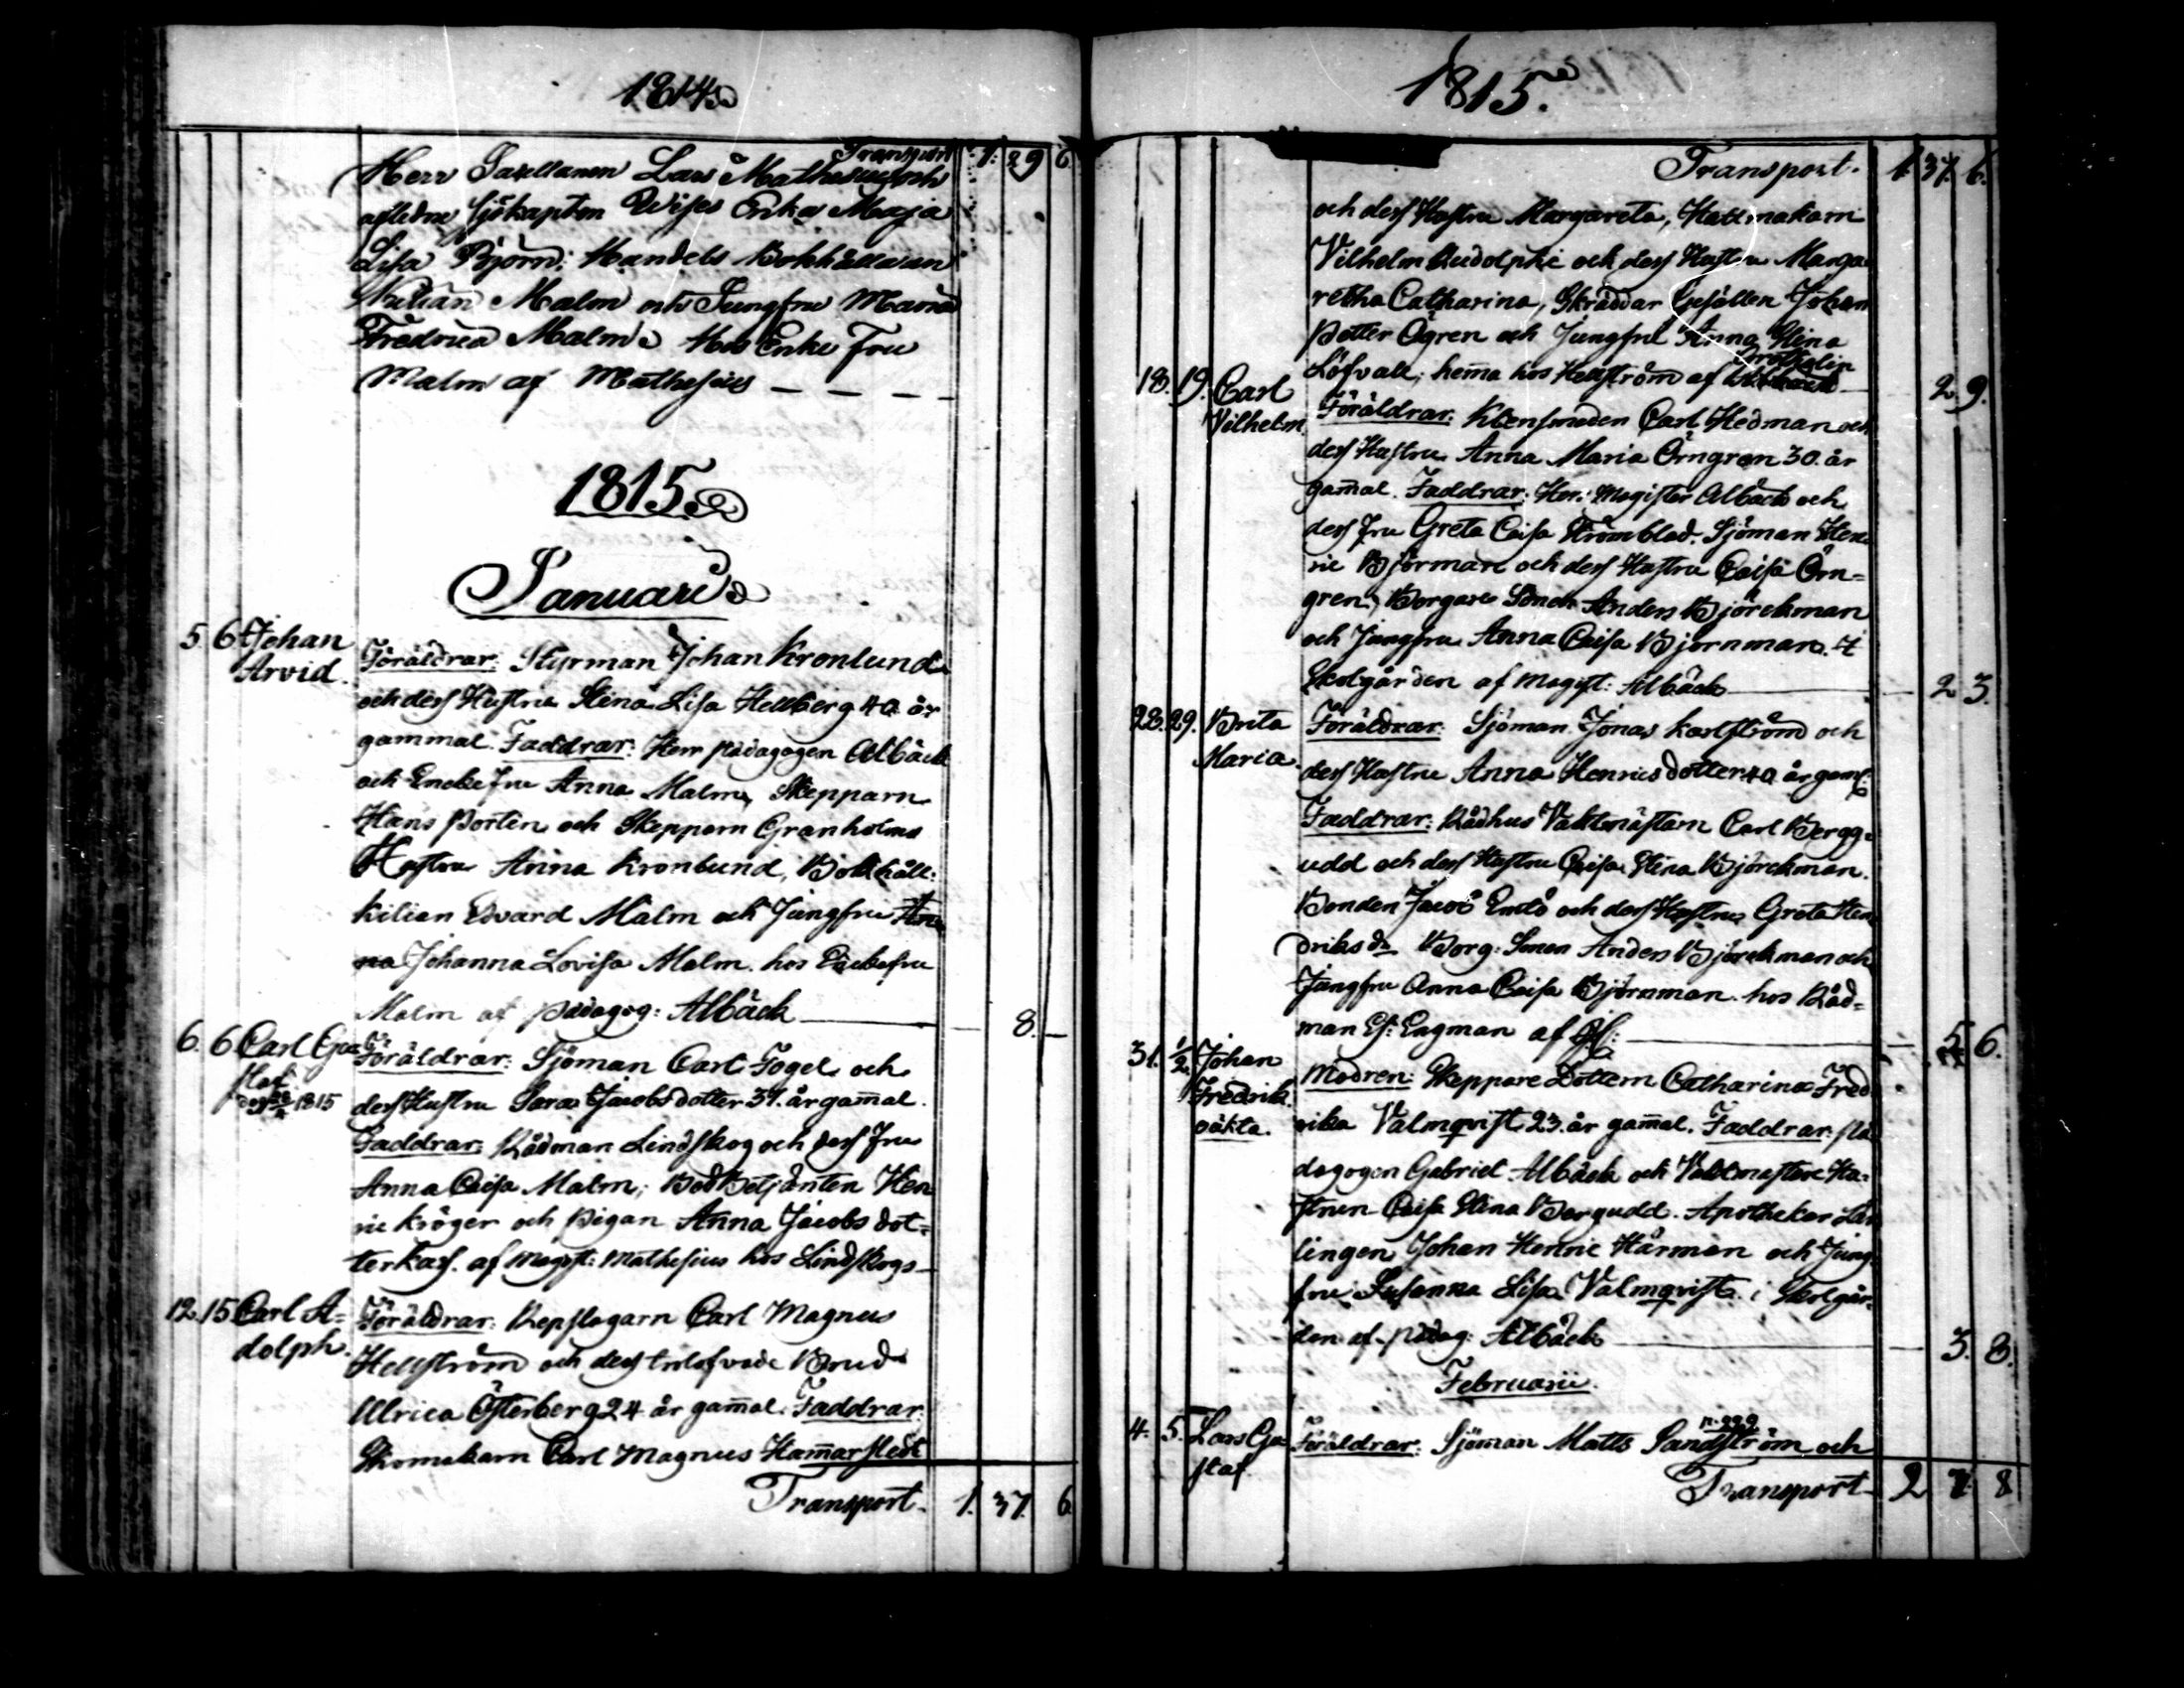 1814
Transport 1. 29 6.
Herr Sacellanen Lars Mathesius och
afledne Sjökapten Wijes Enka Maja
Lisa Björn; Handels Bokhållaren
Kilian Malm och Jungfru Maria
Fredrica Malm. Hos Enke Fru
Malm af Mathesius — — — —
1815.
Januari
5. 6. Johan Föräldrar: Styrman Johan Kronlund
Arvid. och dess Hustru Stina Lisa Hellberg 40 år
gammal. Faddrar: Herr Pädagogen Albäck
och Encke fru Anna Malm, Skepparn
Hans Portin och Skepparn Granholms
Hustru Anna Kronlund, Bokhåll:
Kilian Edvard Malm och Jungfru
Johanna Lovisa Malm. hos Enckefru
Malm af Pädagog: Albäck — 8. —
6. 6. Carl Gu Föräldrar: Sjöman Carl Fogel och
staf dess Hustru Sara Jacobsdotter 37. år gam̄al.
1815
Faddrar: Rådman Lindskog och dess Fru
Anna Caisa Malm; Bod Betjänten Hen
ric Kröger och Pigan Anna Jacobs dot=
ter Kass. af Magist: Mathesius hos Lindskogs —
12. 15. Carl A= Föräldrar: Repslagarn Carl Magnus
dolph. Hellström och dess trolofvade Brud
Ulrica Österberg 24 år gam̄al. Faddrar:
Skomakarn Carl Magnus Ham̄arstedt
Transport. 1. 37. 6.
1815.
Transport. 1. 37. 6.
och dess Hustru Margareta, Hattmakarn
Vilhelm Rudolphi och dess Hustru Marga
retha Catharina, Skräddar Gesällen Johan
Petter Ögren och Jungfru Anna Stina
Löfvall; hem̄a hos Hellström af — 2 9.
18. 19. Carl Föräldrar: Klensmeden Carl Hedman och
Vilhelm. dess Hustru Anna Maria Örngren 30. år
gam̄al. Faddrar: Her: Magister Albäck och
dess fru Greta Caisa Strömblad. Sjöman Hen
ric Björman och dess Hustru Caisa Örn=
gren; Borgare Sonen Anders Björckman
och Jungfru Anna Caisa Björnman. i
Skolgården af Magist: Albäck — 2 3.
23. 29. Brita Föräldrar: Sjöman Jonas Karlström och
Maria. dess Hustru Anna Henricsdotter 40 år gam̄:
Faddrar: Rådhus Vaktmästarn Carl Bergg=
udd och dess Hustru Caisa Stina Björckman.
Bonden Jacob Emtö och dess Hustru Greta Hen
driks dr Borg: Sonen Anders Björckman och
Jungfru Anna Caisa Björnman. hos Råd=
man Es: Engman af — 5 6.
31. 1/2. Johan Modren: Skeppare Dottern Catharina Fred
Fredrik. rika Valmqvist 23. år gam̄al. Faddrar: Pä
oäkta. dagogen Gabriel Albäck och Vaktmästare Hu=
strun Caisa Stina Bergudd. Apothekar Lär
lingen Johan Henric Härman och Jung
fru Susanna Lisa Valmqvist. i Skolgår=
den af Pädag: Albäck — 3. 8.
Februarii.
n. 229
4. 5. Lars Gu Föräldrar: Sjöman Matts Sandström och
staf
Transport 2 7. 8